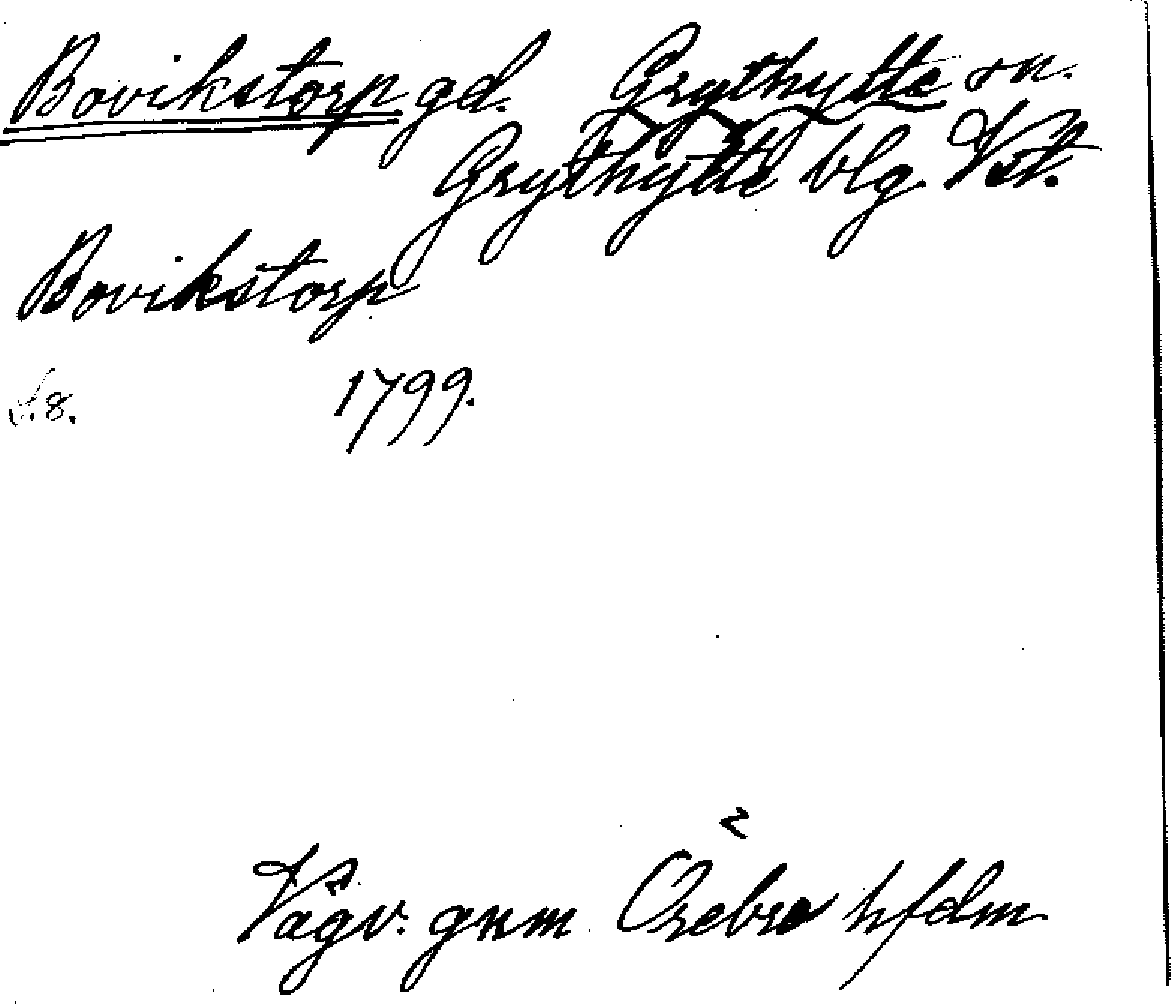 Bovikstorp gd. Grythytte sn.
Grythytte blg. Vst.
Bovikstorp
S. 8. 1799.
Vägv. gnm Örebro hfdm